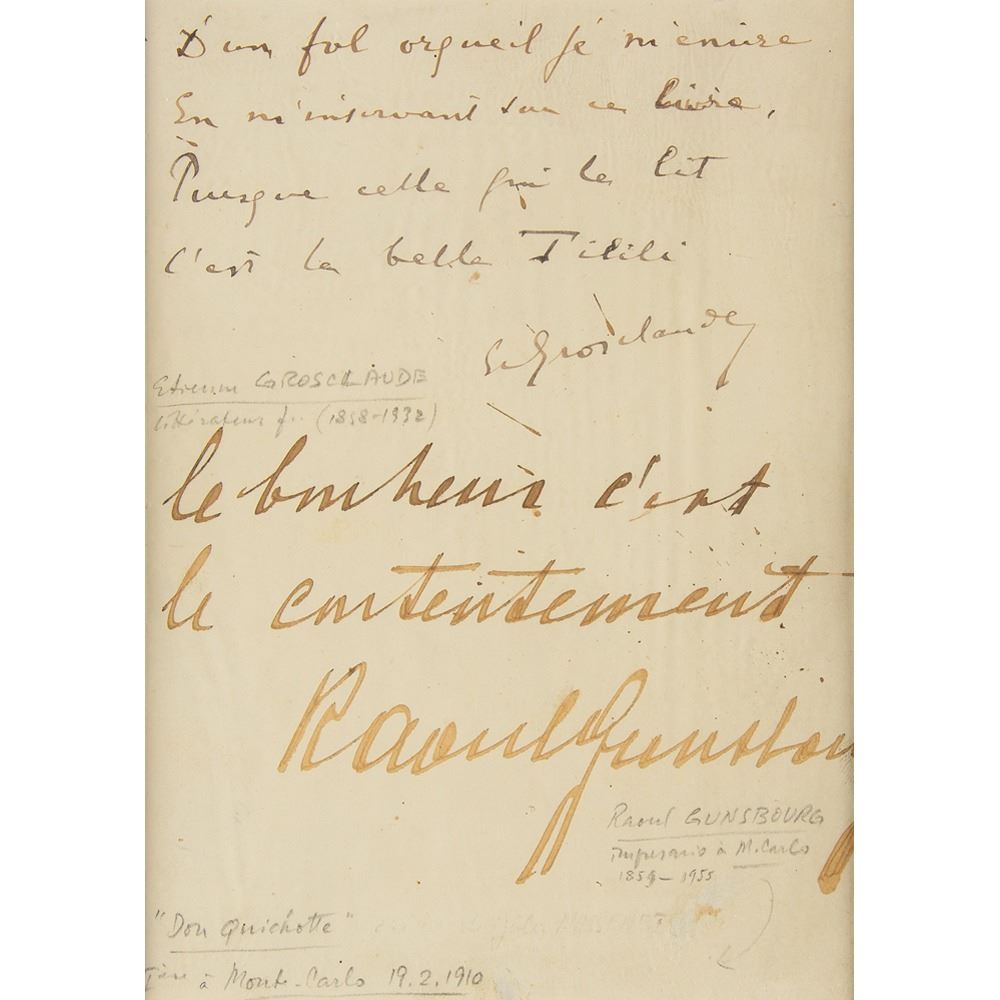 D'un fol orgueil je m'enivre
En m'inscrivant sur ce livre,
Puisque celle qui le lit
C'est la belle Tilili
G. Grosclaude
Etienne GROSCLAUDE
littérateur f.. (1858-1932)
le bonheur c'est
le contentement
Raoul Gunsbourg
Raoul GUNSBOURG
impresario à M. Carlo
1859-1955
"Don Quichotte" de Jules MASSENET
1ère à Monte-Carlo 19.2.1910